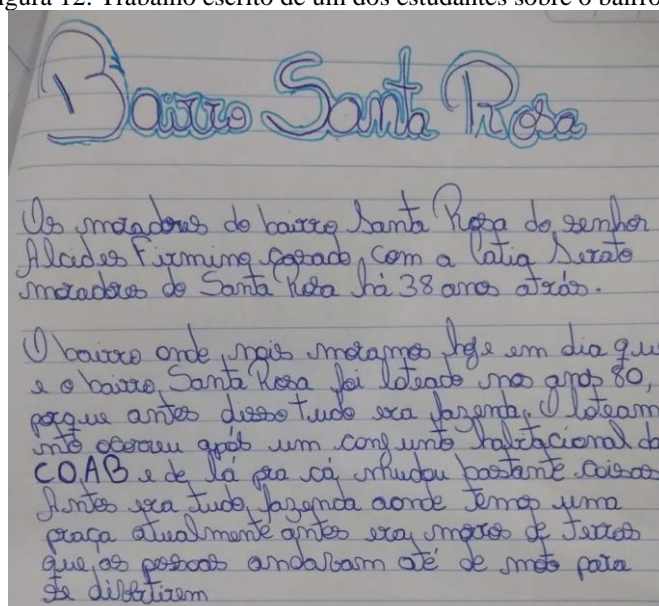 igura 12: Trabalho escrito de um dos estudantes sobre o bairro
Bairro Santa Rosa
Os moradores do bairro Santa Rosa do senhor
Alcides Firmino casado com a Catia Serato
moradores do Santa Rosa há 38 anos atrás.
O bairro onde nois moramos hoje em dia que
e o bairro Santa Rosa foi loteado nos anos 80,
porque antes disso tudo era fazenda, O loteam
nto ocoreu após um conjunto habitacional da
COAB e de lá pra cá mudou bastante coisas
Antes era tudo fazenda aonde temos uma
praça atualmente antes era moros de terras
que as pessoas andavam até de moto para
se divertirem